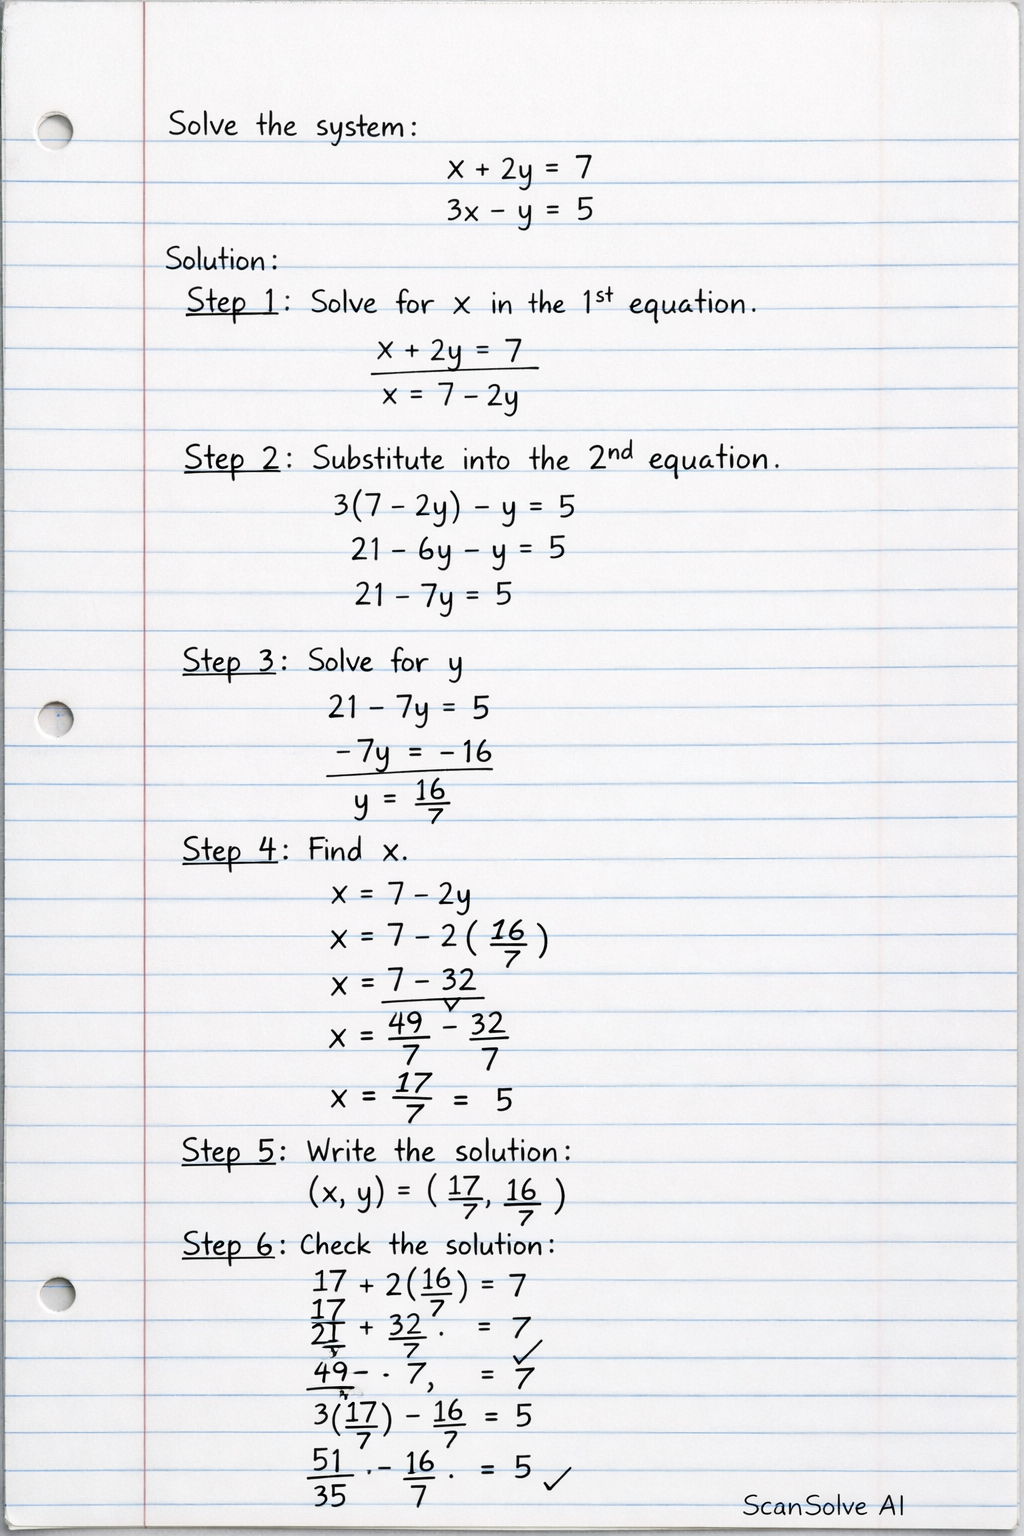 Solve the system:
x + 2y = 7
3x - y = 5
Solution:
Step 1: Solve for x in the 1st equation.
x + 2y = 7
x = 7 - 2y
Step 2: Substitute into the 2nd equation.
3(7 - 2y) - y = 5
21 - 6y - y = 5
21 - 7y = 5
Step 3: Solve for y
21 - 7y = 5
-7y = -16
y = 16/7
Step 4: Find x.
x = 7 - 2y
x = 7 - 2(16/7)
x = 7 - 32
x = 49/7 - 32/7
x = 17/7 = 5
Step 5: Write the solution:
(x, y) = (17/7, 16/7)
Step 6: Check the solution:
17 + 2(16/7) = 7
17/21 + 32/7 . = 7 ✓
49 - · 7, = 7
3(17/7) - 16/7 = 5
51/35 · - 16/7 . = 5 ✓
ScanSolve AI